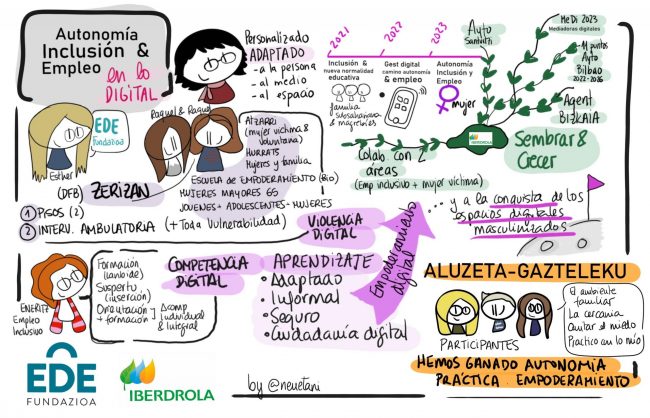 Autonomía
Inclusión &
Empleo
en lo
DIGITAL
Personalizado
ADAPTADO
- a la persona
- al medio
- al espacio
2021
2022
2023
Inclusión &
nueva normalidad
educativa
familia
subsahariana
& magrebíes
Gest digital
camino autonomía
& empleo
Autonomía
Inclusión y
Empleo
mujer
Ayto
Santurtzi
MeDi 2023
Mediadoras digitales
Ayto
Bilbao
Agent
BIZKAIA
IBERDROLA
Sembrar &
Crecer
Colab. con 2
áreas
(Emp inclusivo + mujer víctima)
EDE
FUNDAZIOA
Esther
(DFB)
Raquel & Raquel
ZERIZAN
(mujer víctima &
HURRATS
Mujeres y familia
ESCUELA de EMPODERAMIENTO (Bio)
MUJERES MAYORES 65
JOVENES + ADOLESCENTES - MUJERES
1 PISOS (2)
2 INTERV. AMBULATORIA (+ Toda Vulnerabilidad)
VIOLENCIA
DIGITAL
... y a la conquista de los
espacios digitales
masculinizados
Empoderamiento
digital
ENERITZ
Empleo
Inclusivo
Formación
(Lanbide)
Suspertu
(inserción)
Orientación
+ formación
Acomp
individual &
Integral
COMPETENCIA
DIGITAL
APRENDIZATE
• Adaptado
• Informal
• Seguro
• Ciudadanía digital
ALUZETA-GAZTELEKU
PARTICIPANTES
El ambiente
familiar
La cercanía
Quitar el miedo
Practico en lo mío
HEMOS GANADO AUTONOMÍA
PRÁCTICA. EMPODERAMIENTO
EDE
FUNDAZIOA
IBERDROLA
by @neuetani